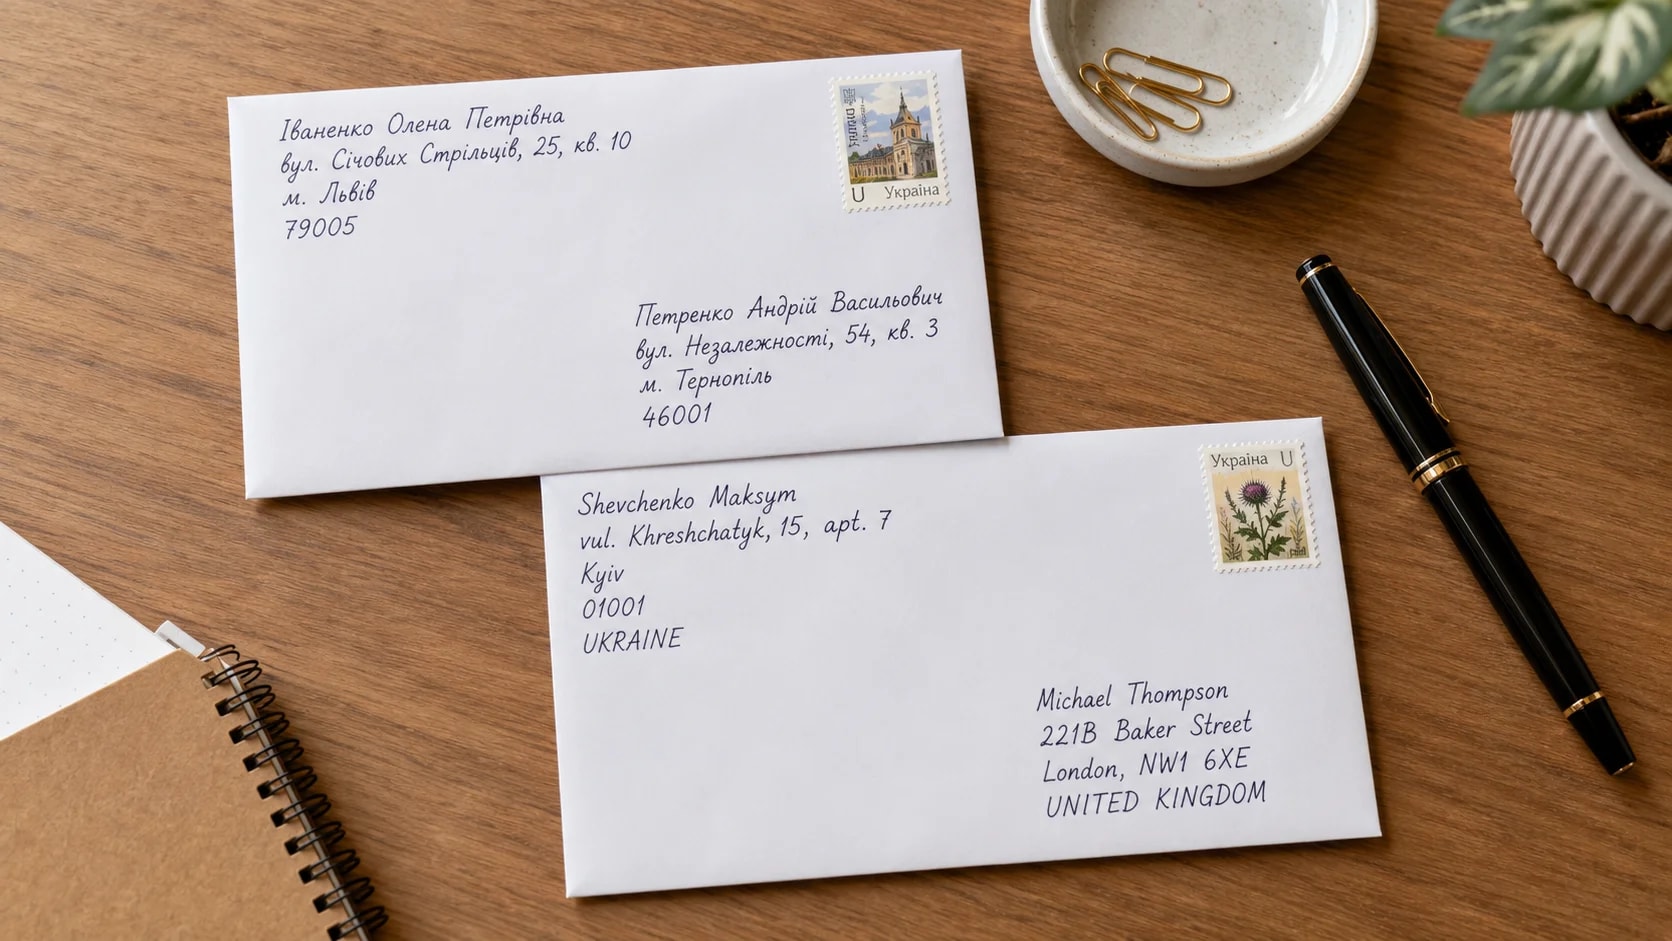 Іваненко Олена Петрівна
вул. Січових Стрільців, 25, кв. 10
м. Львів
79005
U Україна
Петренко Андрій Васильович
вул. Незалежності, 54, кв. 3
м. Тернопіль
46001
Shevchenko Maksym
vul. Khreshchatyk, 15, apt. 7
Kyiv
01001
UKRAINE
Україна U
Michael Thompson
221B Baker Street
London, NW1 6XE
UNITED KINGDOM